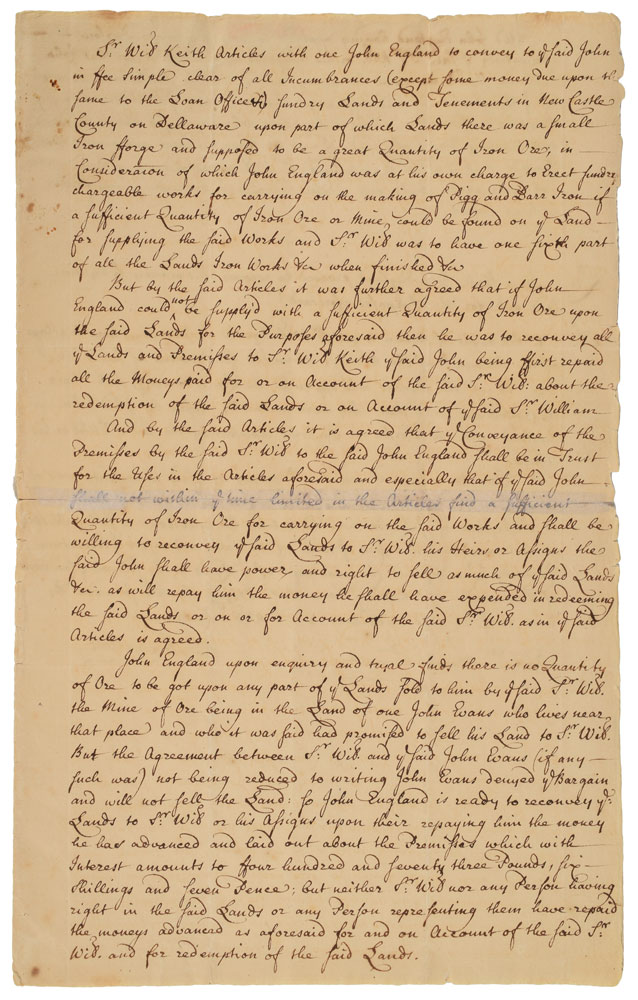 Sr. Wm. Keith Articles with one John England to convey to ye said John
in ffee simple clear of all Incumbrances (except some money due upon the
same to the Loan Office) sundry Lands and Tenements in New Castle
County on Dellaware upon part of which Lands there was a small
Iron fforge and supposed to be a great Quantity of Iron Ore, in
Consideracon of which John England was at his own charge to Erect sundry
chargeable works for carrying on the making of Pigg and Barr Iron if
a sufficient Quantity of Iron Ore or Mine, could be found on ye Land
for supplying the said Works and Sr. Wm. was to have one sixth part
of all the Lands Iron Works &ca when finished &ca
But by the said Articles it was further agreed that if John
England could not be supply'd with a sufficient Quantity of Iron Ore upon
the said Lands for the Purposes aforesaid then he was to reconvey all
ye Lands and Premisses to Sr. Wm. Keith ye said John being ffirst repaid
all the Moneys paid for or on Account of the said Sr. Wm: about the
redemption of the said Lands or on Account of ye said Sr. William
And by the said Articles it is agreed that ye Conveyance of the
Premisses by the said Sr. Wm. to the said John England shall be in Trust
for the Uses in the Articles aforesaid and especially that if ye said John
shall not within ye time limited in the Articles find a sufficient
Quantity of Iron Ore for carrying on the said Works and shall be
willing to reconvey ye said Lands to Sr. Wm. his Heirs or Assigns the
said John shall have power and right to sell as much of ye said Lands
&ca. as will repay him the money he shall have expended in redeeming
the said Lands or on or for Account of the said Sr. Wm. as in ye said
Articles is agreed.
John England upon enquiry and tryal finds there is no Quantity
of Ore to be got upon any part of ye Lands sold to him by ye said Sr. Wm.
the Mine of Ore being in the Land of one John Evans who lives near
that place and who it was said had promised to sell his Land to Sr. Wm.
But the Agreement between Sr. Wm. and ye said John Evans (if any
such was) not being reduced to writing John Evans denyed ye Bargain
and will not sell the Land: so John England is ready to reconvey ye
Lands to Sr. Wm. or his Assigns upon their repaying him the money
he has advanced and laid out about the Premisses which with
Interest amounts to ffour hundred and seventy three Pounds, six
Shillings and seven Pence; but neither Sr. Wm. nor any Person having
right in the said Lands or any Person representing them have repaid
the moneys advanced as aforesaid for and on Account of the said Sr.
Wm. and for redemption of the said Lands.